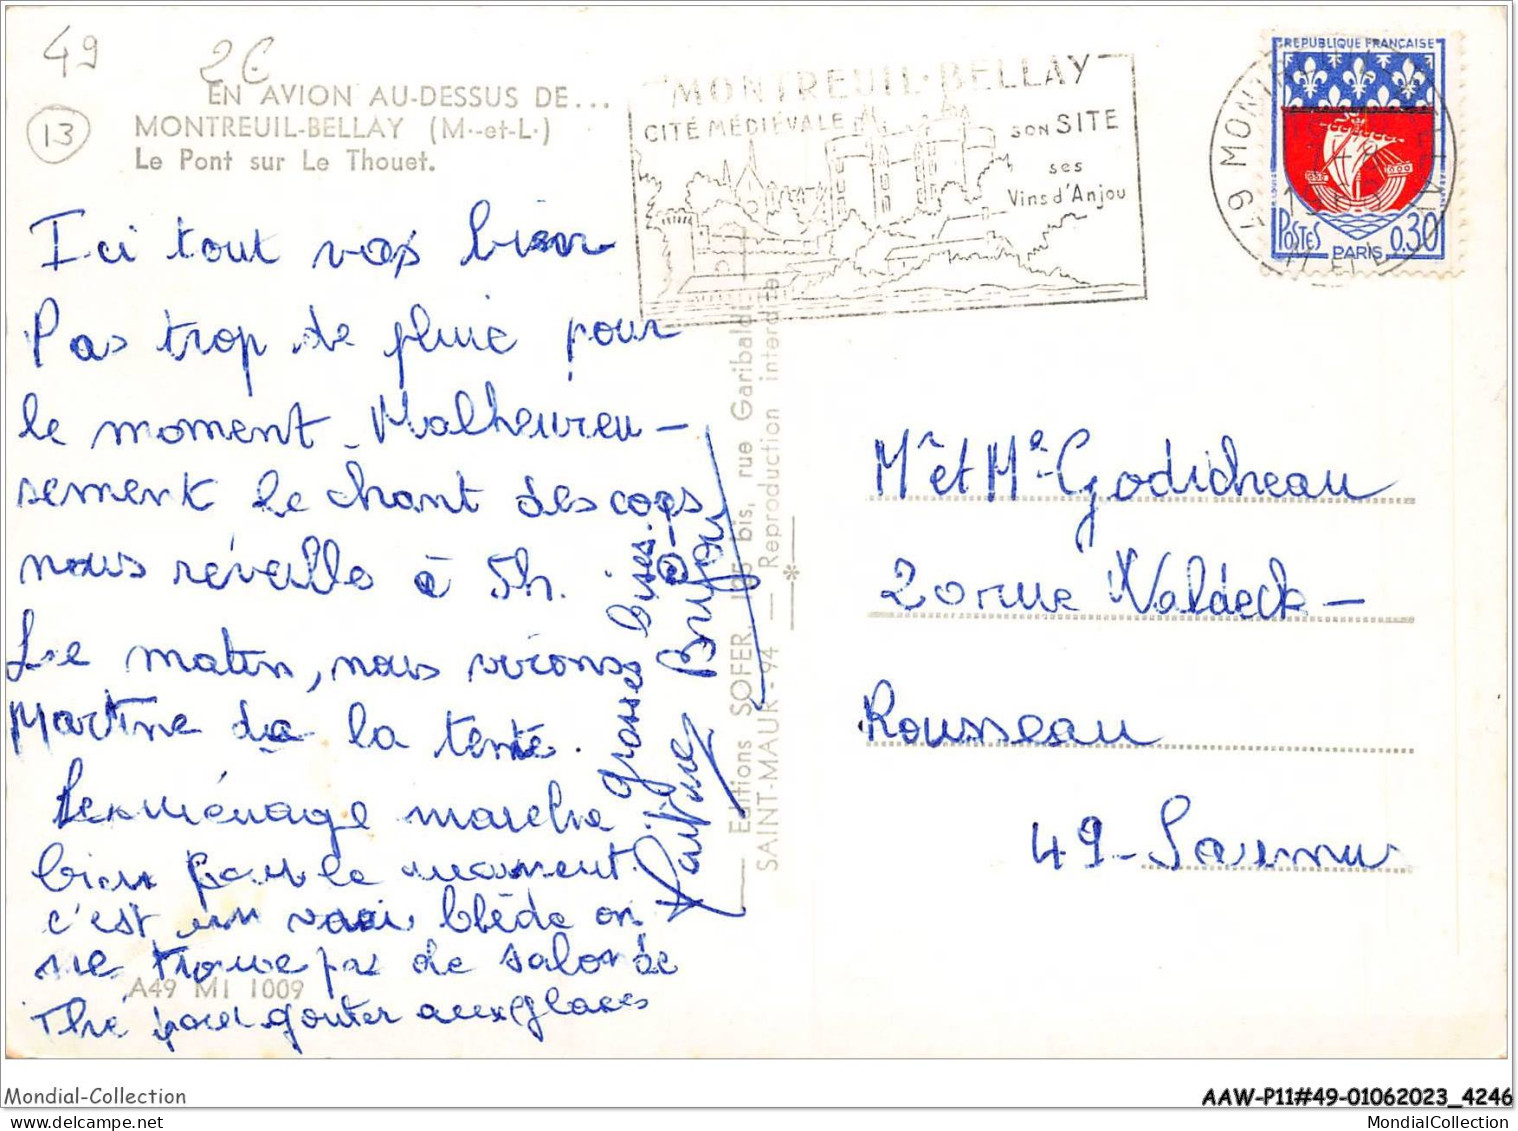 49
2€
13
EN AVION AU-DESSUS DE...
MONTREUIL-BELLAY (M.-et-L.)
Le Pont sur Le Thouet.
MONTREUIL-BELLAY
CITÉ MÉDIÉVALE
SON SITE
ses
Vins d'Anjou
REPUBLIQUE FRANÇAISE
POSTES PARIS 0,30
49 MONTREUIL BELLAY
Ici tout vas bien
Pas trop de pluie pour
le moment - Malheureu-
sement le chant des coqs
nous réveille à 5h.
Le matin, nous virons
Martine de la tente.
Le ménage marche
bien pour le moment
c'est un vrai blède on
ne trouve pas de salon de
Thé pour gouter aux glaces
grosses bises.
Martine
Editions SOFER, 105 bis, rue Garibaldi
SAINT-MAUR - 94 — Reproduction interdite
Mr et Me Godicheau
20 rue Waldeck-
Rousseau
49 - Saumur
A49 MI 1009
Mondial-Collection
AAW-P11#49-01062023_4246
MondialCollection